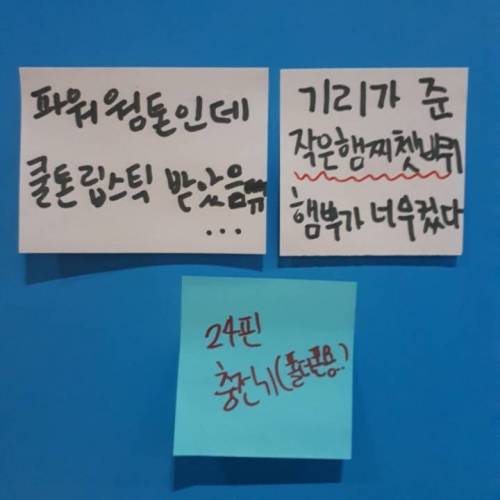 파워웜톤인데
쿨톤립스틱 받았음ㅠㅠ
...
기리가 준
작은햄찌쳇바퀴
햄부가 너무컸다
24핀
충전기(폴더폰용!)